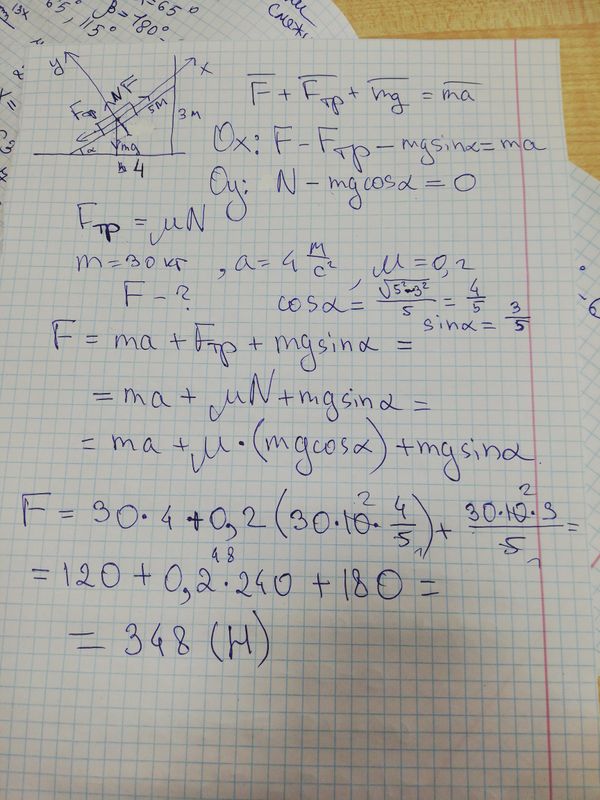 65°
=65°
115°
β=180°
смеж
y
x
N F
Fтр
5м
3м
α
mg
4
F + Fтр + mg = ma
Ox: F - Fтр - mgsinα = ma
Oy: N - mgcosα = 0
Fтр = μN
m = 30 кг , a = 4 м/с² , μ = 0,2
F - ?
cosα = √5²-3²/5 = 4/5
sinα = 3/5
F = ma + Fтр + mgsinα =
= ma + μN + mgsinα =
= ma + μ·(mgcosα) + mgsinα.
F = 30·4 + 0,2 (30·10·4/5) + 30·10·3/5 =
= 120 + 0,2·240 + 180 =
48
= 348 (Н)